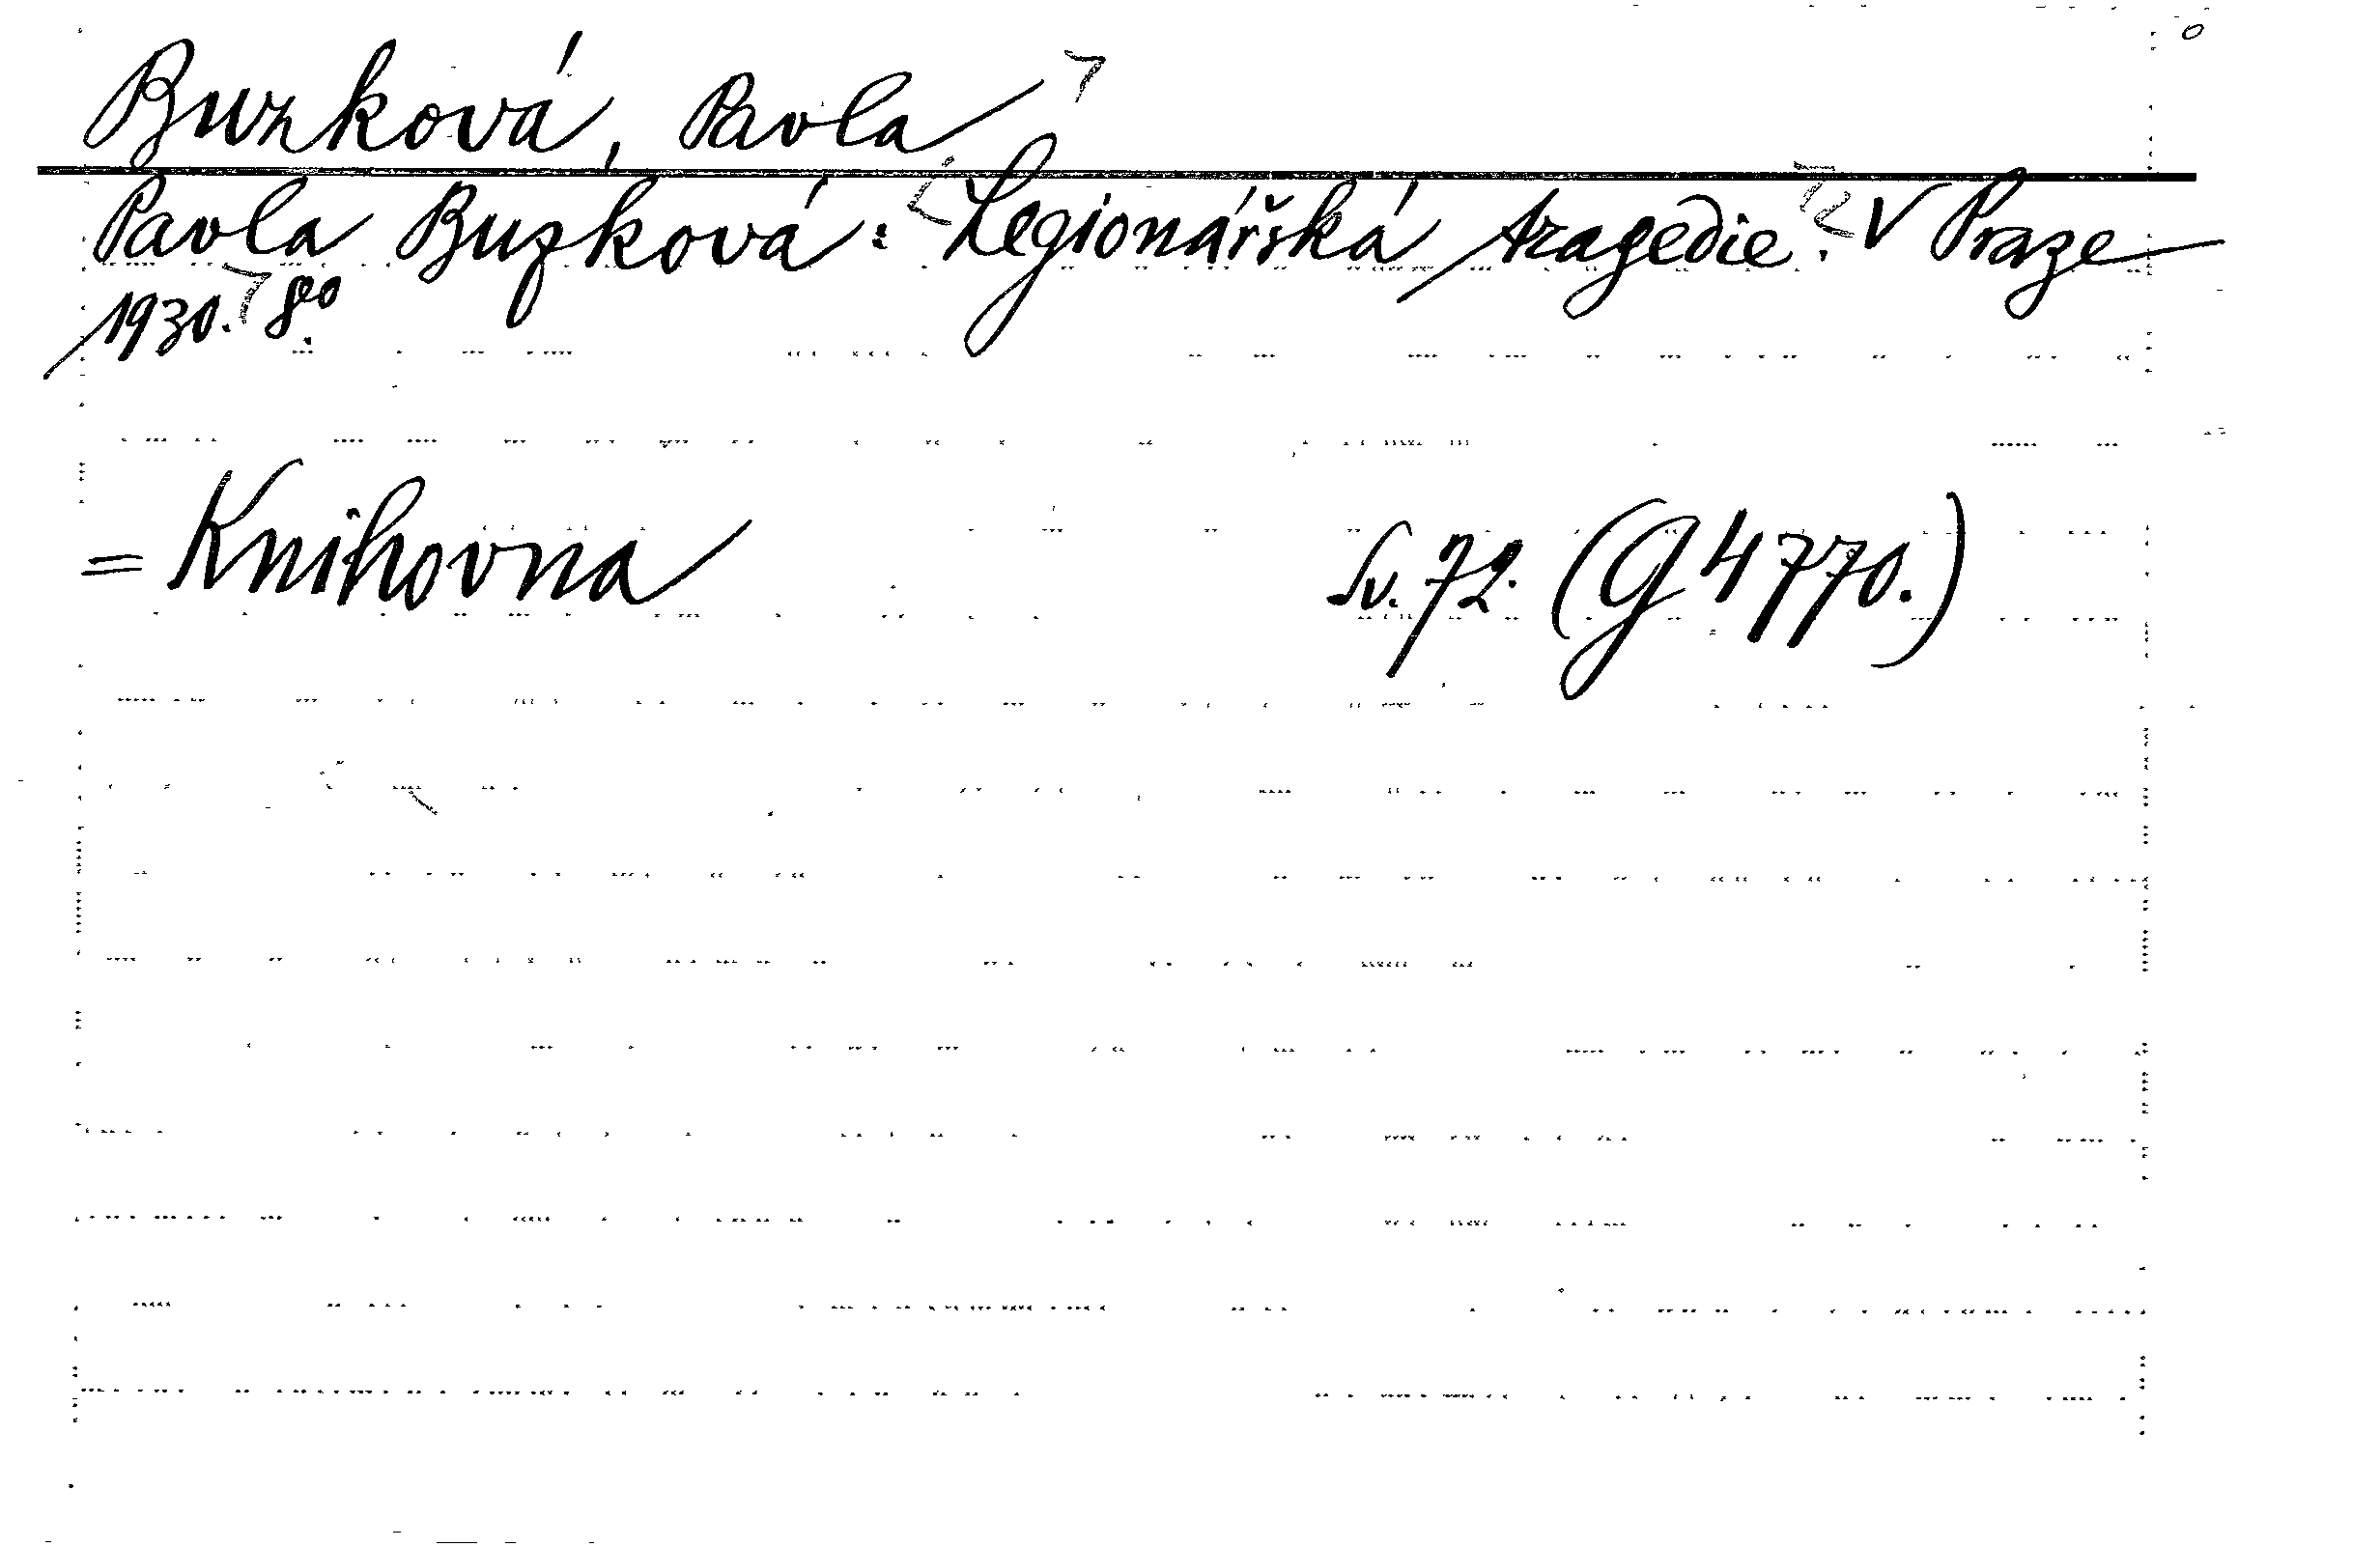 Buzková, Pavla
Pavla Buzková: Legionářská tragedie. V Praze
1930. 8o.
= Knihovna Sv. 72. (G 4770.)